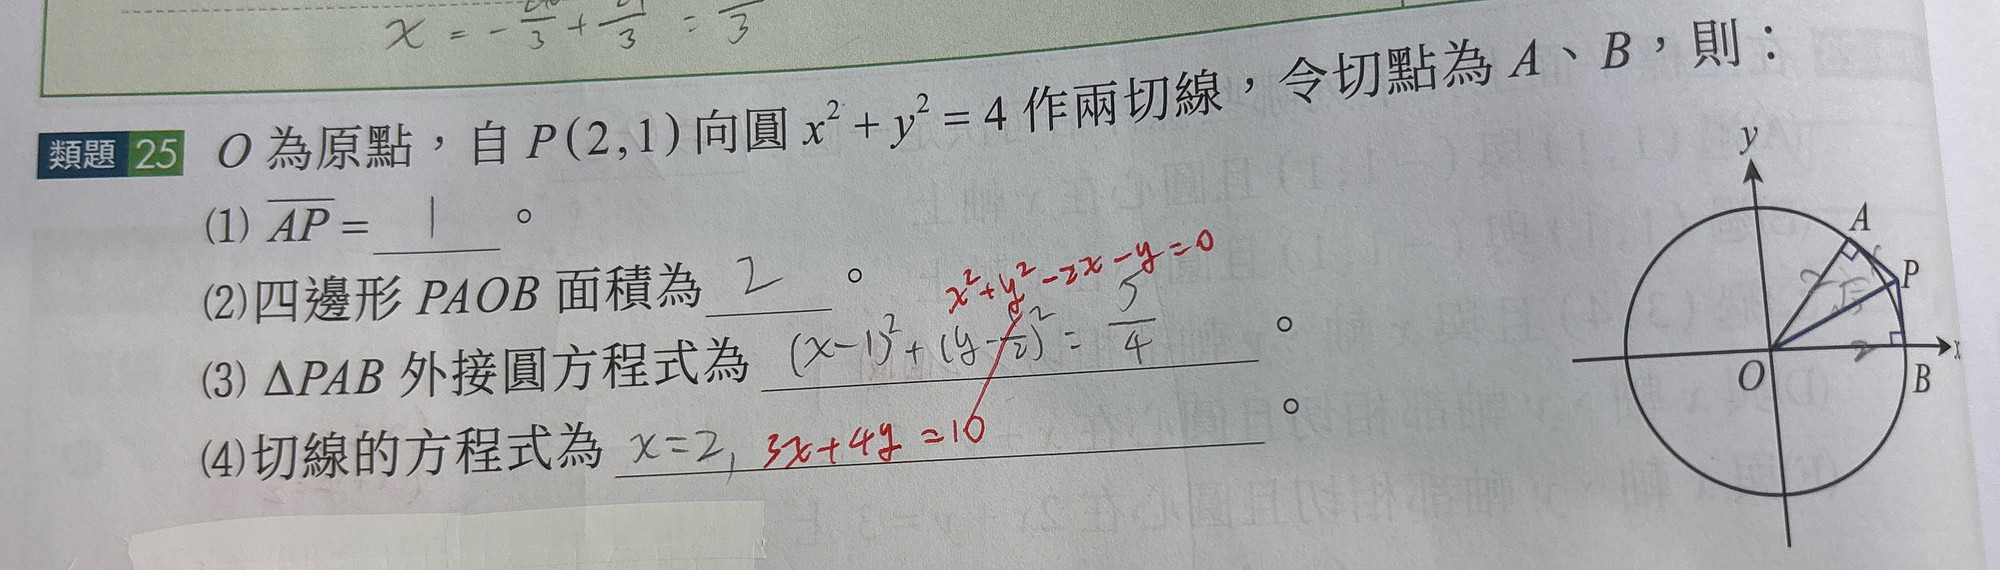 x = - + = 
3 3 3
類題 25 O 為原點，自 P(2,1) 向圓 x² + y² = 4 作兩切線，令切點為 A、B，則：
(1) \overline{AP} = 1 。
(2)四邊形 PAOB 面積為 2 。
x²+y²-2x-y=0
(3) ΔPAB 外接圓方程式為 (x-1)²+(y-\frac{1}{2})²=\frac{5}{4} 。
(4)切線的方程式為 x=2, 3x+4y=10 。
y
A
P
2
O
2
B
x